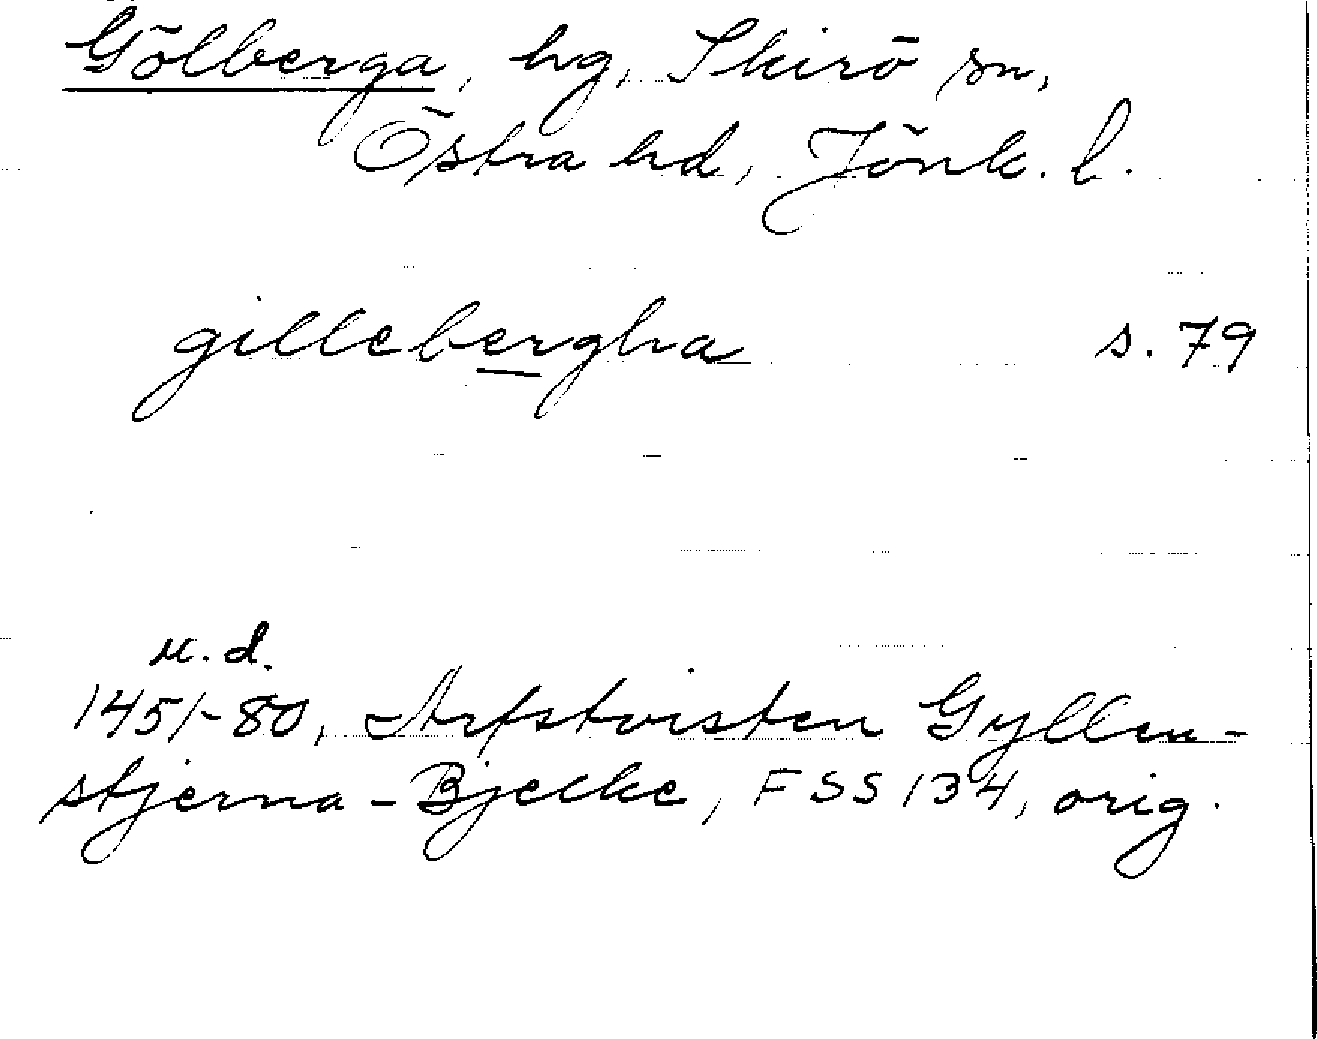 Gölberga, hg, Skirö sn,
Östra hd, Jönk. l.
gillebergha s. 79
u.d.
1451-80, Arfstvisten Gyllen-
stjerna - Bjelke, FSS 134, orig.